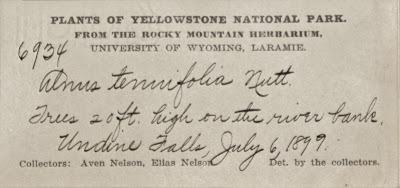 PLANTS OF YELLOWSTONE NATIONAL PARK.
FROM THE ROCKY MOUNTAIN HERBARIUM,
UNIVERSITY OF WYOMING, LARAMIE.
6934
Alnus tennifolia Nutt.
Trees 20 ft. high on the river bank.
Undine Falls, July 6, 1899.
Collectors: Aven Nelson, Elias Nelson. Det. by the collectors.